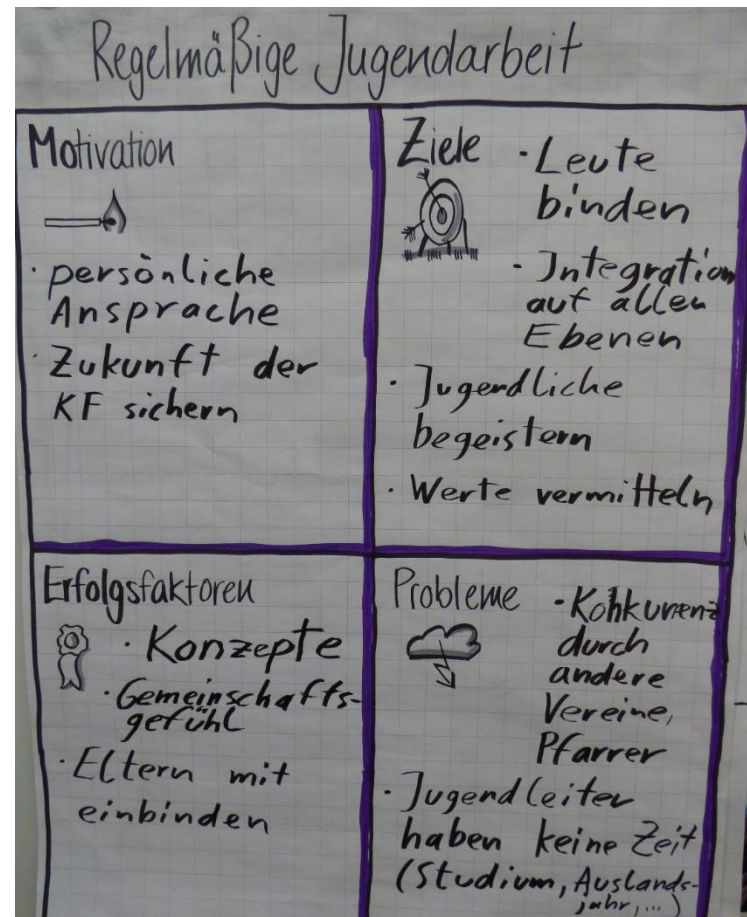 Regelmäßige Jugendarbeit
Motivation
· persönliche
Ansprache
· Zukunft der
KF sichern
Ziele
· Leute
binden
· Integration
auf allen
Ebenen
· Jugendliche
begeistern
· Werte vermitteln
Erfolgsfaktoren
· Konzepte
· Gemeinschafts-
gefühl
· Eltern mit
einbinden
Probleme
· Konkurrenz
durch
andere
Vereine,
Pfarrer
· Jugendleiter
haben keine Zeit
(Studium, Auslands-
jahr, ...)